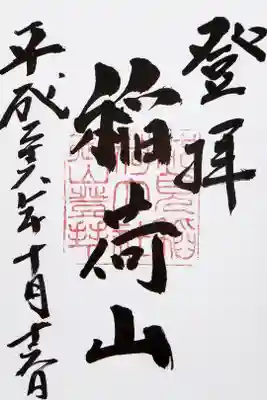 登拝
稲荷山
平成二十六年十月十六日